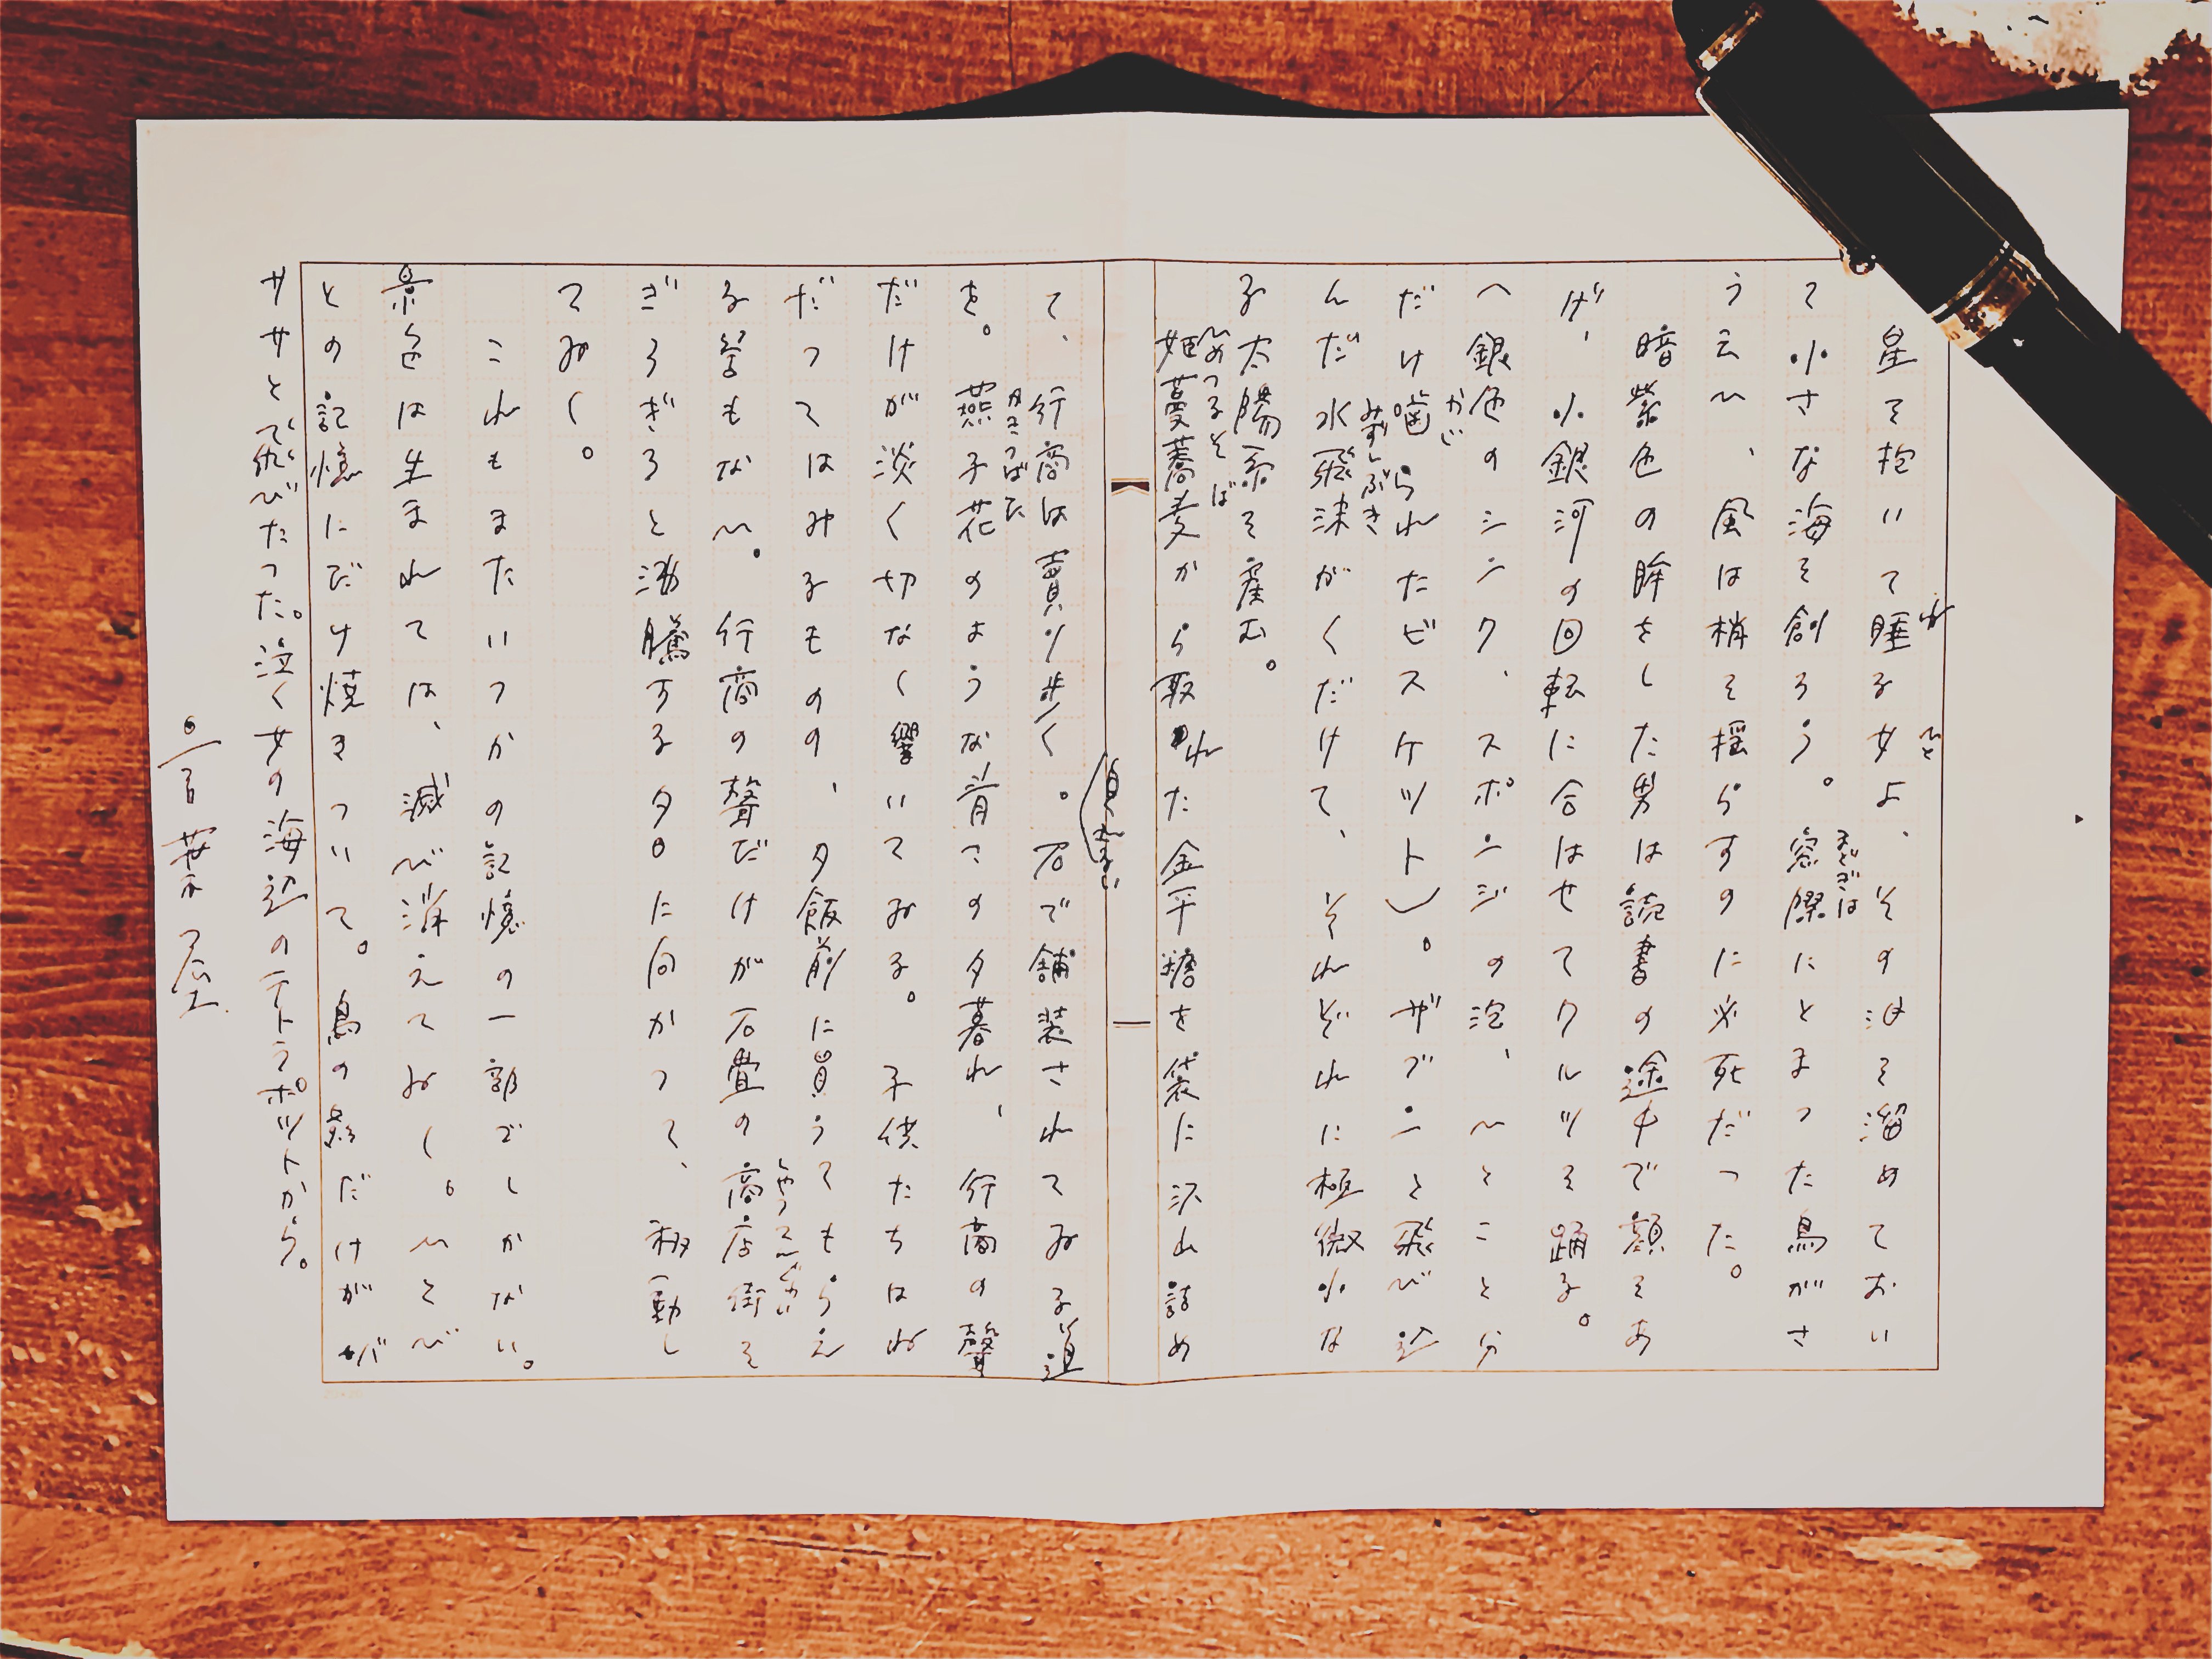 星を抱いて睡る女よ、その泪を溜めておい
ね
ひと
て小さな海を創ろう。窓際にとまった鳥がさ
まどぎは
う云ひ、風は梢を揺らすのに必死だった。
暗紫色の眸をした男は読書の途中で顔をあ
げ、小銀河の回転に合はせてワルツを踊る。
へ銀色のシンク、スポンジの泡、ひとこと分
だけ噛られたビスケット)。ザブンと飛び込
かじ
んだ水飛沫がくだけて、それぞれに極微小な
みずしぶき
る太陽系を産む。
姫蔓蕎麦から取れた金平糖を袋に沢山詰め
ひめつるそば
て、行商は賣り歩く。石で舗装されてゐる道
を。燕子花のような青さの夕暮れ、行商の聲
かきつばた
だけが淡く切なく響いてゐる。子供たちはね
だってはみるものの、夕飯前に買うてもらえ
る筈もない。行商の聲だけが石畳の商店街を
しやうてんがい
ぎろぎろと沸騰する夕日に向かって、移動し
てゐく。
これもまたいつかの記憶の一部でしかない。
景色は生まれては、滅び消えてゐく。ひとび
との記憶にだけ焼きついて。鳥の影だけがバ
サササと飛びたった。泣く女の海辺のテトラポットから。
言葉屋